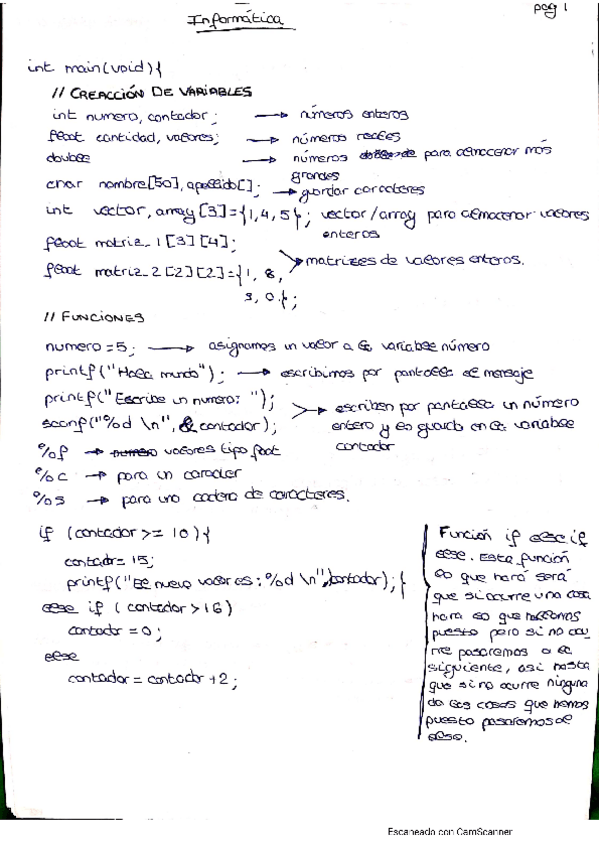 Informática
pag 1
int main(void){
// CREACCIÓN DE VARIABLES
int numero, contador; → números enteros
float cantidad, valores; → números reales
double → números para almacenar más grandes
char nombre[50], apellido[]; → guardar caracteres
int vector, array[3]={1,4,5}; vector/array para almacenar valores enteros
float matriz_1[3][4];
float matriz_2[2][2]={1, 8, → matrizes de valores enteros.
3, 0};
// FUNCIONES
numero=5; → asignamos un valor a la variable número
printf("Hola mundo"); → escribimos por pantalla el mensaje
printf("Escribe un numero: ");
scanf("%d \n", &contador); → escriben por pantalla un número
entero y lo guarda en la variable
contador
%f → numero valores tipo float
%c → para un caracter
%s → para una cadena de caracteres.
if (contador >= 10){
contador= 15;
printf("El nuevo valor es: %d \n",contador); {
else if ( contador >16)
contador = 0;
else
contador = contador +2;
Función if else if
else. Esta función
lo que hará será
que si ocurre una cosa
hara lo que hallamos
puesto pero si no ocu
rre pasaremos a la
siguiente, asi hasta
que si no ocurre ninguna
de las cosas que hemos
puesto pasaremos al
else.
Escaneado con CamScanner